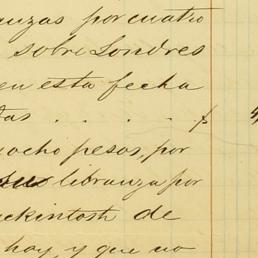 anzas por cuatro
sobre Londres
en esta fecha
das . . . . $
ocho pesos, por
su libranza por
ckintosh de
hoy y que no